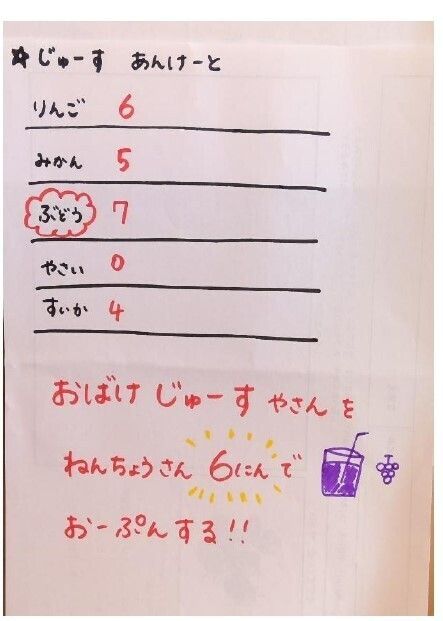 ☆じゅーす あんけーと
りんご 6
みかん 5
ぶどう 7
やさい 0
すいか 4
おばけ じゅーす やさん を
ねんちょうさん 6にんで
おーぷんする!!